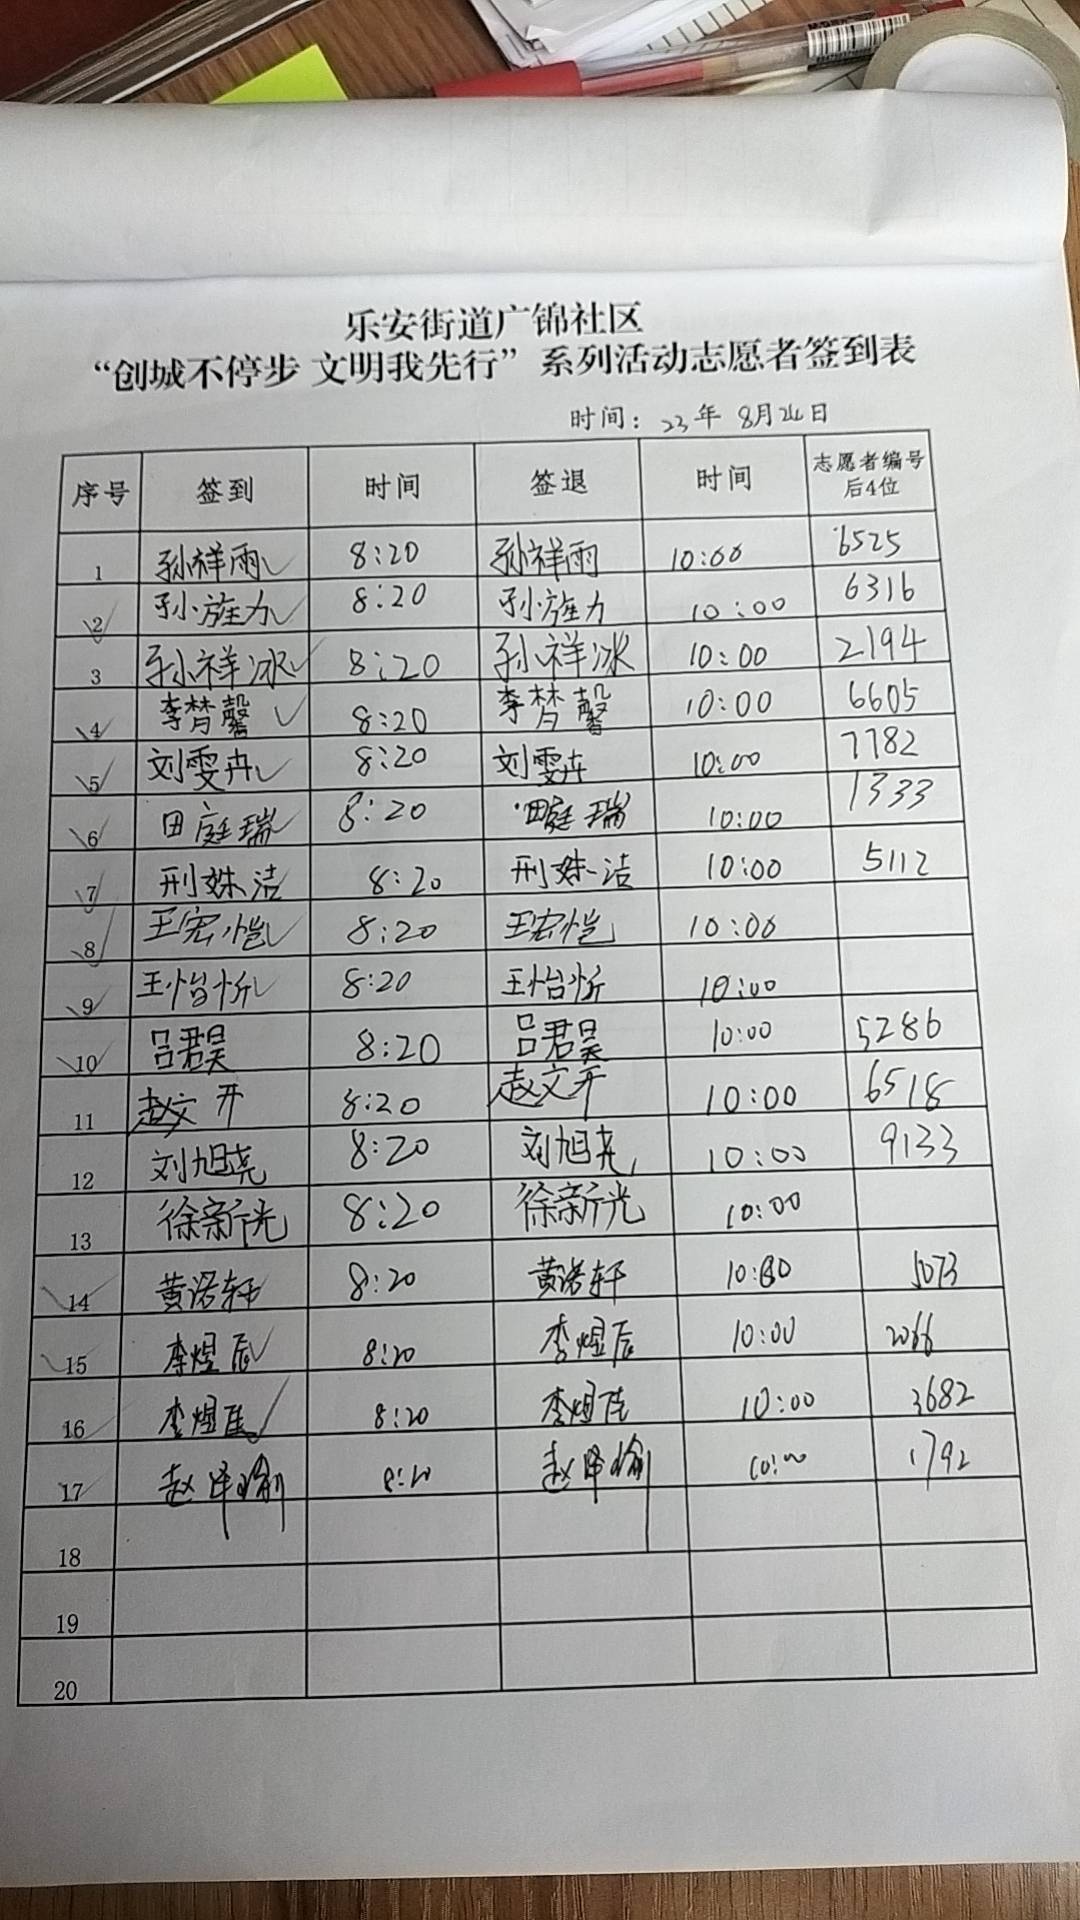 乐安街道广锦社区
“创城不停步 文明我先行”系列活动志愿者签到表
时间：23年 8月24日
序号 签到 时间 签退 时间 志愿者编号后4位
1 孙祥雨 8:20 孙祥雨 10:00 6525
2 孙旌力 8:20 孙旌力 10:00 6316
3 孙祥冰 8:20 孙祥冰 10:00 2194
4 李梦馨 8:20 李梦馨 10:00 6605
5 刘雯卉 8:20 刘雯卉 10:00 7782
6 田庭瑞 8:20 田庭瑞 10:00 1333
7 刑姝洁 8:20 刑姝洁 10:00 5112
8 王宏恺 8:20 王宏恺 10:00
9 王怡忻 8:20 王怡忻 10:00
10 吕君昊 8:20 吕君昊 10:00 5286
11 赵文开 8:20 赵文开 10:00 6518
12 刘旭尧 8:20 刘旭尧 10:00 9133
13 徐新光 8:20 徐新光 10:00
14 黄诺轩 8:20 黄诺轩 10:00 5073
15 李煜辰 8:20 李煜辰 10:00 2066
16 李煜佳 8:20 李煜佳 10:00 3682
17 赵泽瑜 8:20 赵泽瑜 10:00 1792
18
19
20